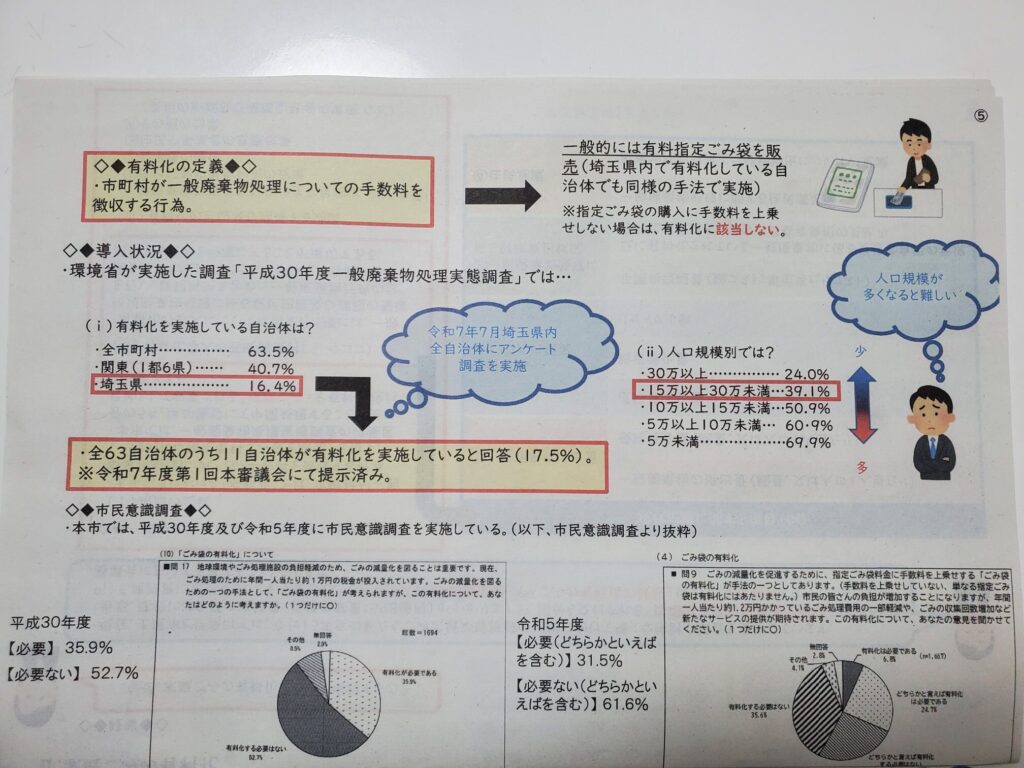 ⑤
◇◆有料化の定義◆◇
・市町村が一般廃棄物処理についての手数料を
徴収する行為。
一般的には有料指定ごみ袋を販
売(埼玉県内で有料化している自
治体でも同様の手法で実施)
※指定ごみ袋の購入に手数料を上乗
せしない場合は、有料化に該当しない。
◇◆導入状況◆◇
・環境省が実施した調査「平成30年度一般廃棄物処理実態調査」では…
人口規模が
多くなると難しい
(ⅰ)有料化を実施している自治体は?
・全市町村…………… 63.5%
・関東(1都6県)…… 40.7%
・埼玉県……………… 16.4%
令和7年7月埼玉県内
全自治体にアンケート
調査を実施
(ⅱ)人口規模別では?
・30万以上…………… 24.0%
・15万以上30万未満…39.1%
・10万以上15万未満…50.9%
・5万以上10万未満… 60.9%
・5万未満……………69.9%
少
多
・全63自治体のうち11自治体が有料化を実施していると回答(17.5%)。
※令和7年度第1回本審議会にて提示済み。
◇◆市民意識調査◆◇
・本市では、平成30年度及び令和5年度に市民意識調査を実施している。(以下、市民意識調査より抜粋)
平成30年度
【必要】 35.9%
【必要ない】 52.7%
(10)「ごみ袋の有料化」について
■問 17 地球環境やごみ処理施設の負担軽減のため、ごみの減量化を図ることは重要です。現在、
ごみ処理のために年間一人当たり約1万円の税金が投入されています。ごみの減量化を図る
ための一つの手法として、「ごみ袋の有料化」が考えられますが、この有料化について、あな
たはどのように考えますか。(1つだけに○)
総数=1694
無回答
2.9%
その他
8.5%
有料化が必要である
35.9%
有料化する必要はない
52.7%
令和5年度
【必要(どちらかといえば
を含む)】 31.5%
【必要ない(どちらかとい
えばを含む)】 61.6%
(4) ごみ袋の有料化
■ 問9 ごみの減量化を促進するために、指定ごみ袋料金に手数料を上乗せする「ごみ袋
の有料化」が手法の一つとしてあります。(手数料を上乗せしていない、単なる指定ごみ
袋は有料化にはあたりません。)市民の皆さんの負担が増加することになりますが、年間
一人当たり約1.2万円かかっているごみ処理費用の一部軽減や、ごみの収集回数増加など
新たなサービスの提供が期待されます。この有料化について、あなたの意見を聞かせて
ください。(1つだけに○)
無回答
2.8%
その他
4.1%
有料化は必要である
6.8%
(n=1,667)
どちらかと言えば有料化
は必要である
24.7%
有料化する必要はない
35.6%
どちらかと言えば有料化
する必要はない